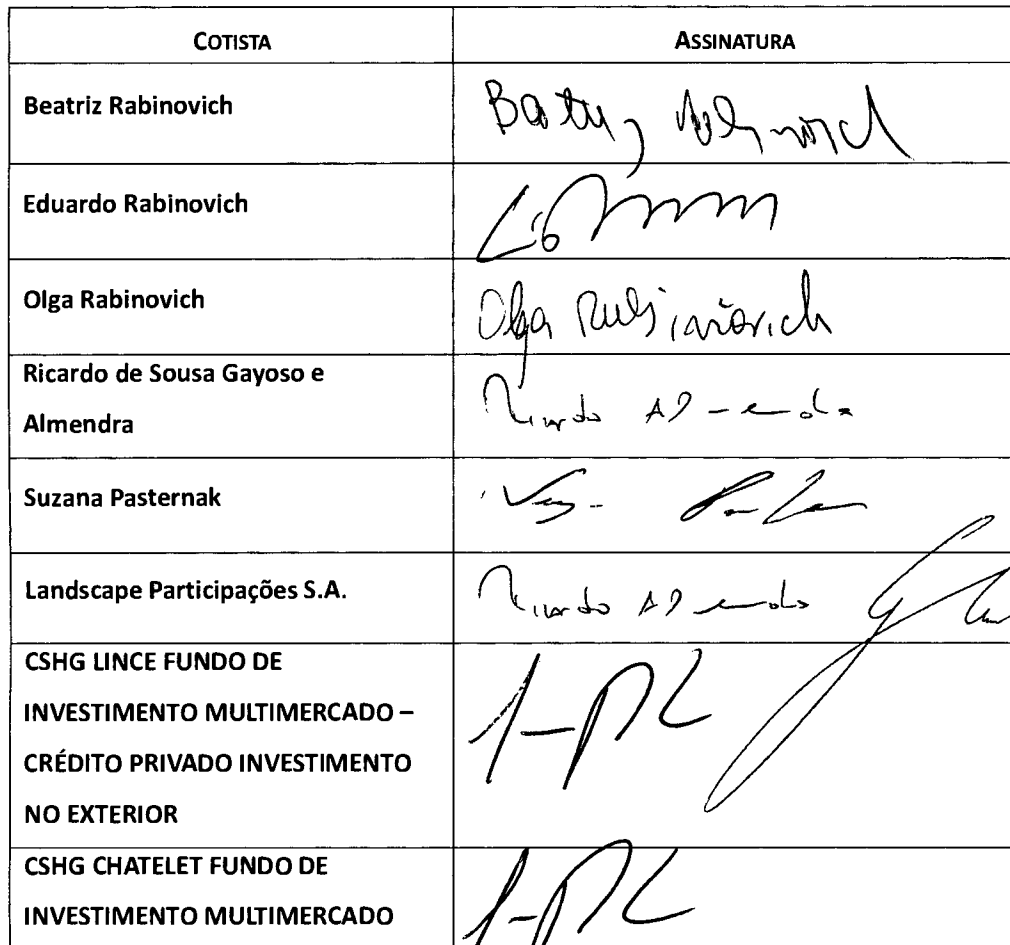 COTISTA ASSINATURA
Beatriz Rabinovich
Eduardo Rabinovich
Olga Rabinovich Olga Rabinovich
Ricardo de Sousa Gayoso e
Almendra Ricardo Almendra
Suzana Pasternak
Landscape Participações S.A. Ricardo Almendra
CSHG LINCE FUNDO DE
INVESTIMENTO MULTIMERCADO –
CRÉDITO PRIVADO INVESTIMENTO
NO EXTERIOR
CSHG CHATELET FUNDO DE
INVESTIMENTO MULTIMERCADO